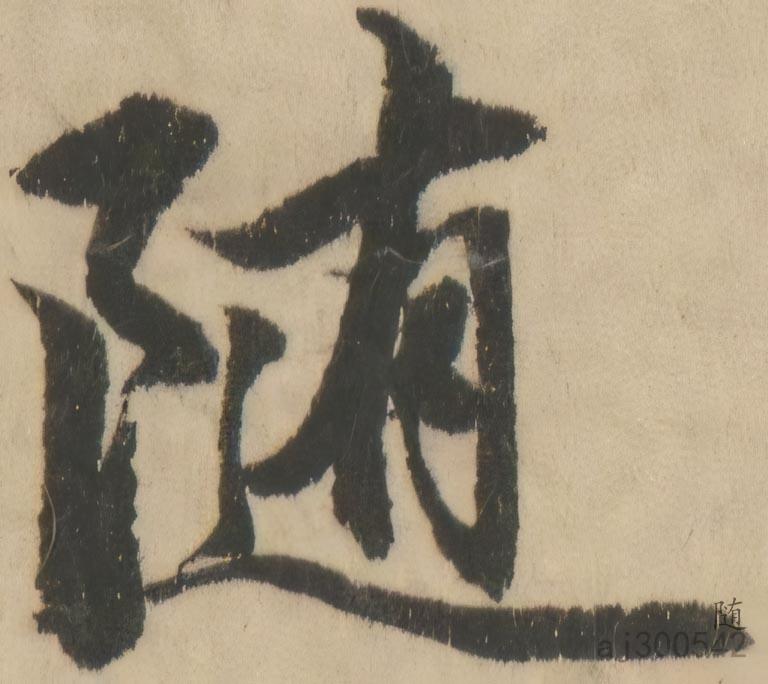 随
随
aj300542